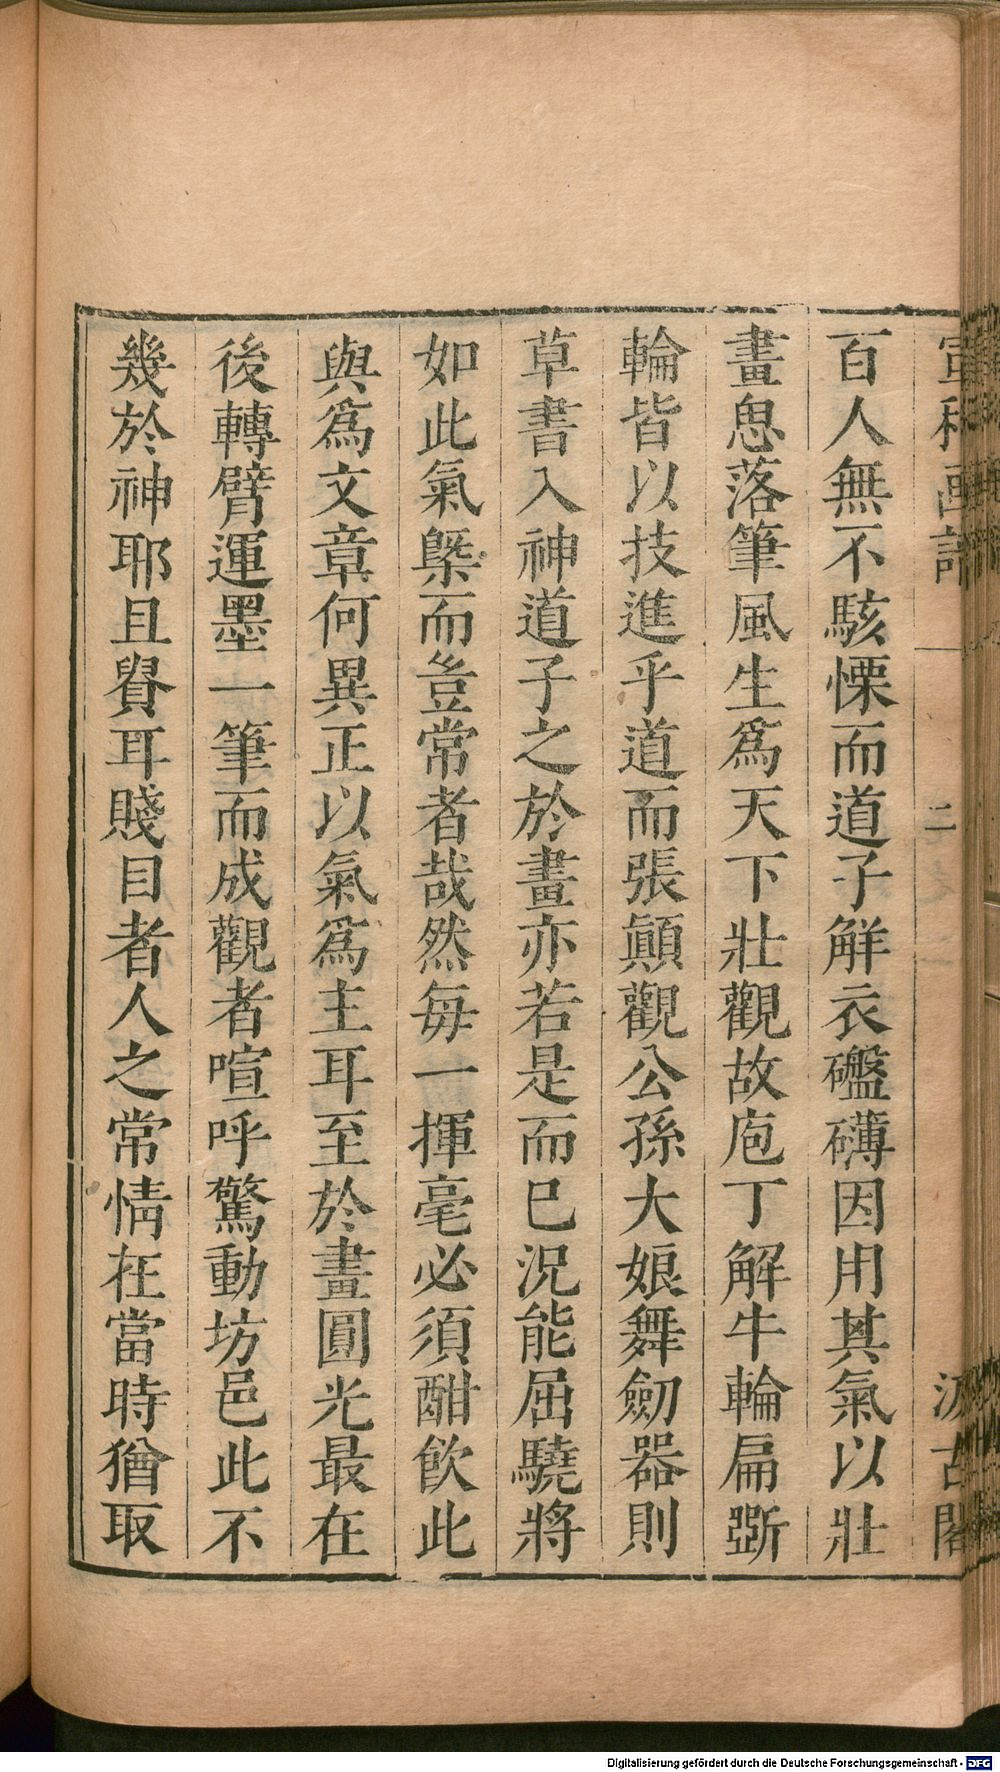 百人無不駭慄而道子解衣礛礴因用其氣以壯
畫思落筆風生爲天下壯觀故庖丁解牛輪扁斵
輪皆以技進乎道而張顚觀公孫大娘舞劒器則
草書入神道子之於畫亦若是而已況能屈驍將
如此氣槩而豈常者哉然每一揮毫必須酣飮此
與爲文章何異正以氣爲主耳至於畫圓光最在
後轉臂運墨一筆而成觀者喧呼驚動坊邑此不
幾於神耶且貴耳賤目者人之常情在當時猶取
二
汲古閣
Digitalisierung gefördert durch die Deutsche Forschungsgemeinschaft - DFG